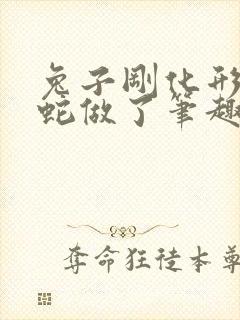 兔子剛化形
蛇做了筆趣
奪命狂徒本尊